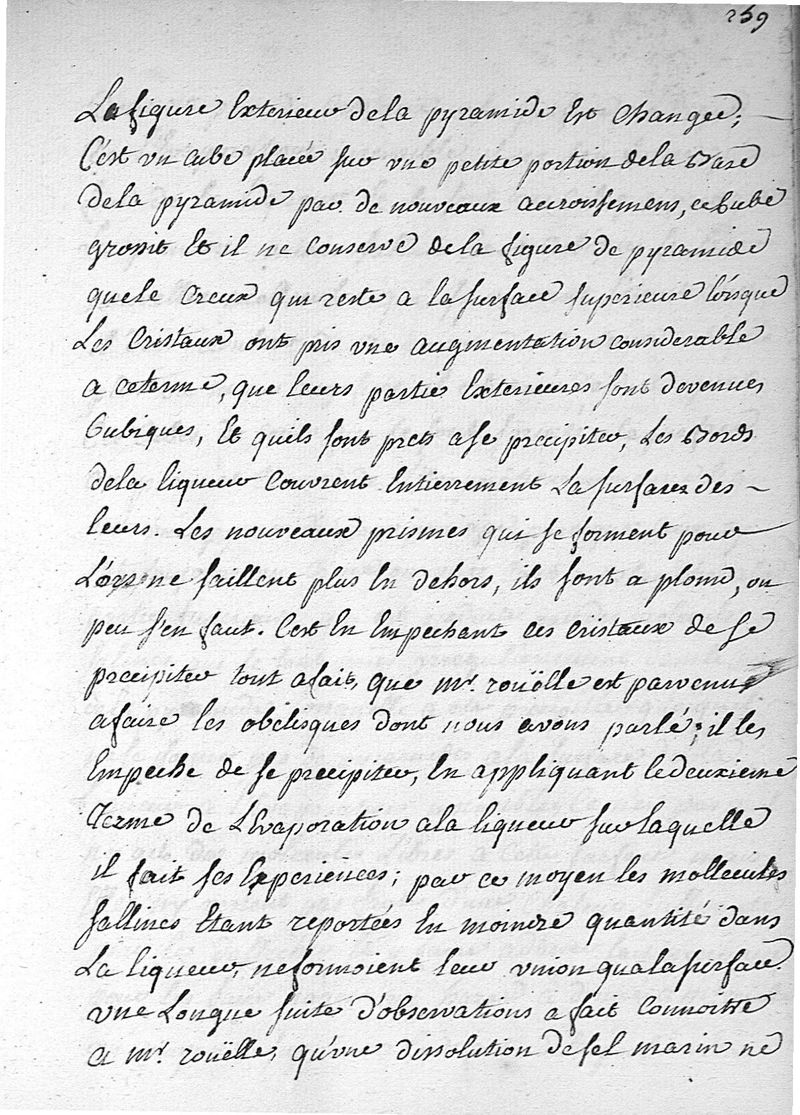 259
La figure Exterieur dela pyramide Est Changée;
C'est vn cube placée sur vne petite portion dela Base
dela pyramide par de nouveaux accroissemens, ce Cube
grossit Et il ne Conserve dela figure de pyramide
que le Creux qui reste a la surface superieure lorsque
Les Cristaux ont pris vne augmentation considerable
a ce terme, que leurs partie Exterieures sont devenues
Cubiques, Et quils sont prets a se precipiter, Les Bords
dela liqueur Couvrent Entierrement La surfaces des-
leurs. Les nouveaux prismes qui se forment pour
Lors ne saillent plus En dehors, ils sont a plomb, ou
peu s'en faut. C'est En Empechant ces cristaux de se
precipiter tout afait, que mr. rouëlle est parvenu
a faire les obelisques dont nous avons parlé; il les
Empeche de se precipiter, En appliquant le deuxieme
Terme de L'Evaporation ala liqueur sur laquelle
il fait ses Experiences; par ce moyen les mollecules
sallines Etant reportées En moindre quantité dans
La liqueur, ne formoient leur vnion qua la surface.
vne Longue suite d'observations a fait Connoitre
a mr. rouëlle, qu'vne dissolution de sel marin ne